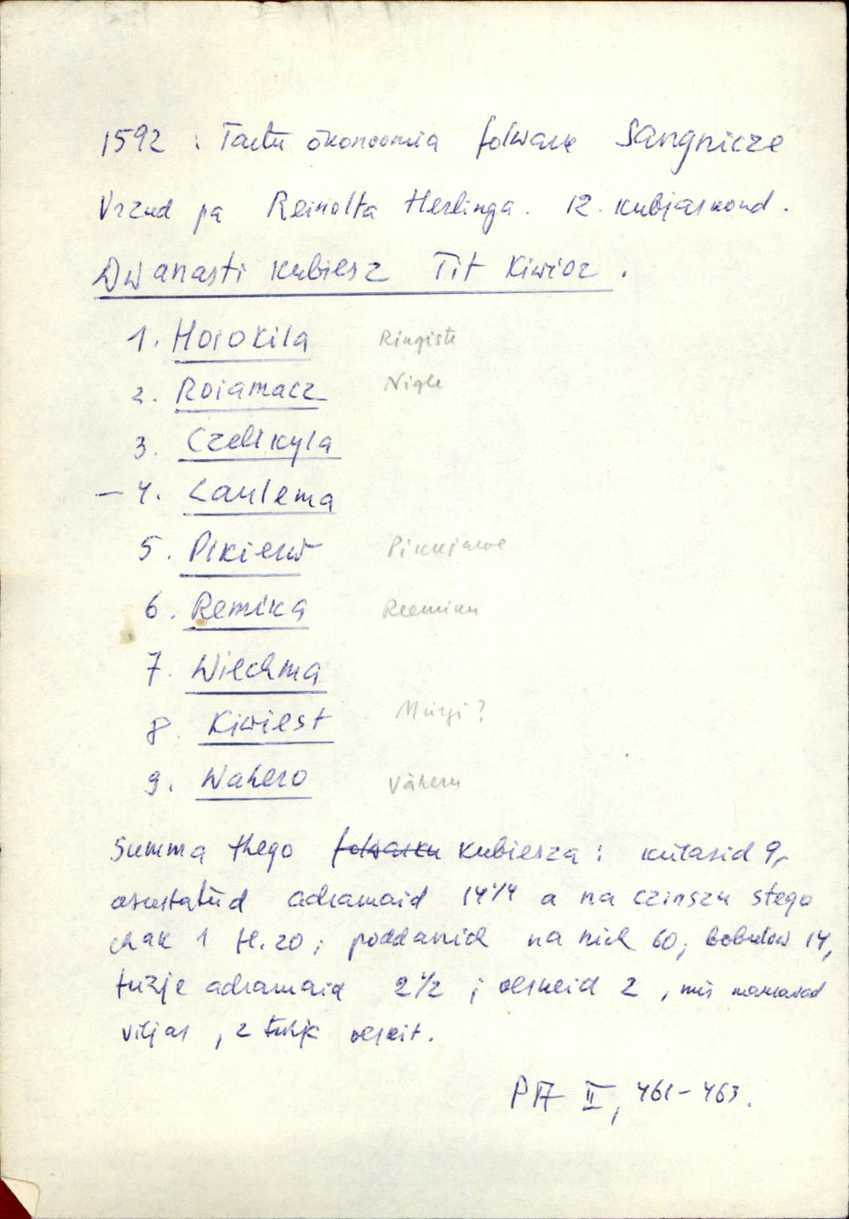 1592 : Tartu ökonoomia folwark Sangnicze
Vrzud pa Reinolta Herlinga. 12. kubjaskond.
Dwanasti kubiesz Tit Kiwioz.
1. Hoiokila Ringiste
2. Roiamacz Nigle
3. Czelikyla
– 4. Laulema
5. Pikierw Pikkjärve
6. Remika Reemiku
7. Wiechma
8. Kiwiest Mürgi?
9. Wahero Väheru
Summa thego folwarku kubiesza : külasid 9,
asustatud adramaid 14 1/4 a na czinszu stego
chak 1 fl. 20 ; poddanich na nich 60, bobulow 14,
tühje adramaid 2 1/2 ; veskeid 2 , mis maksavad
viljas , 2 tühja veskit.
PA II, 461–463.